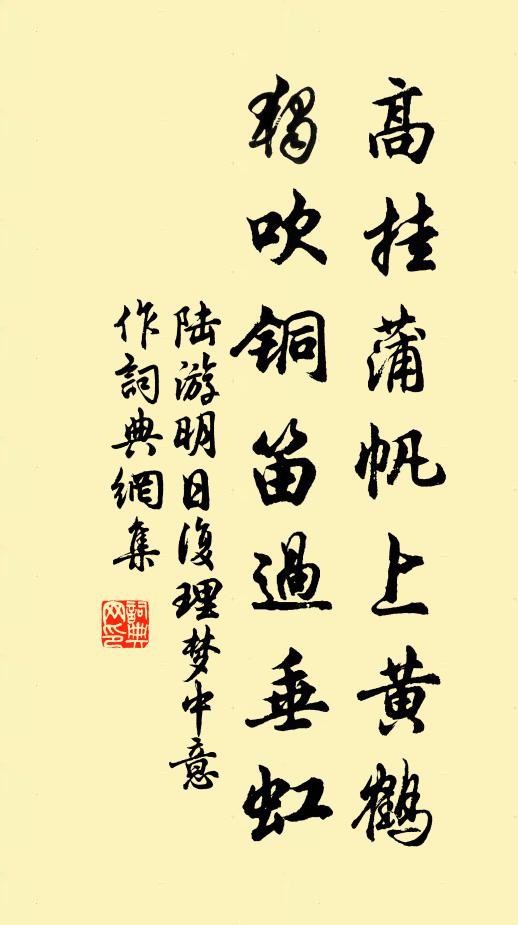 高挂蒲帆上黄鹤
独吹铜笛過垂虹
陆游明日復理梦中意
作詞典網集
詞典
网印